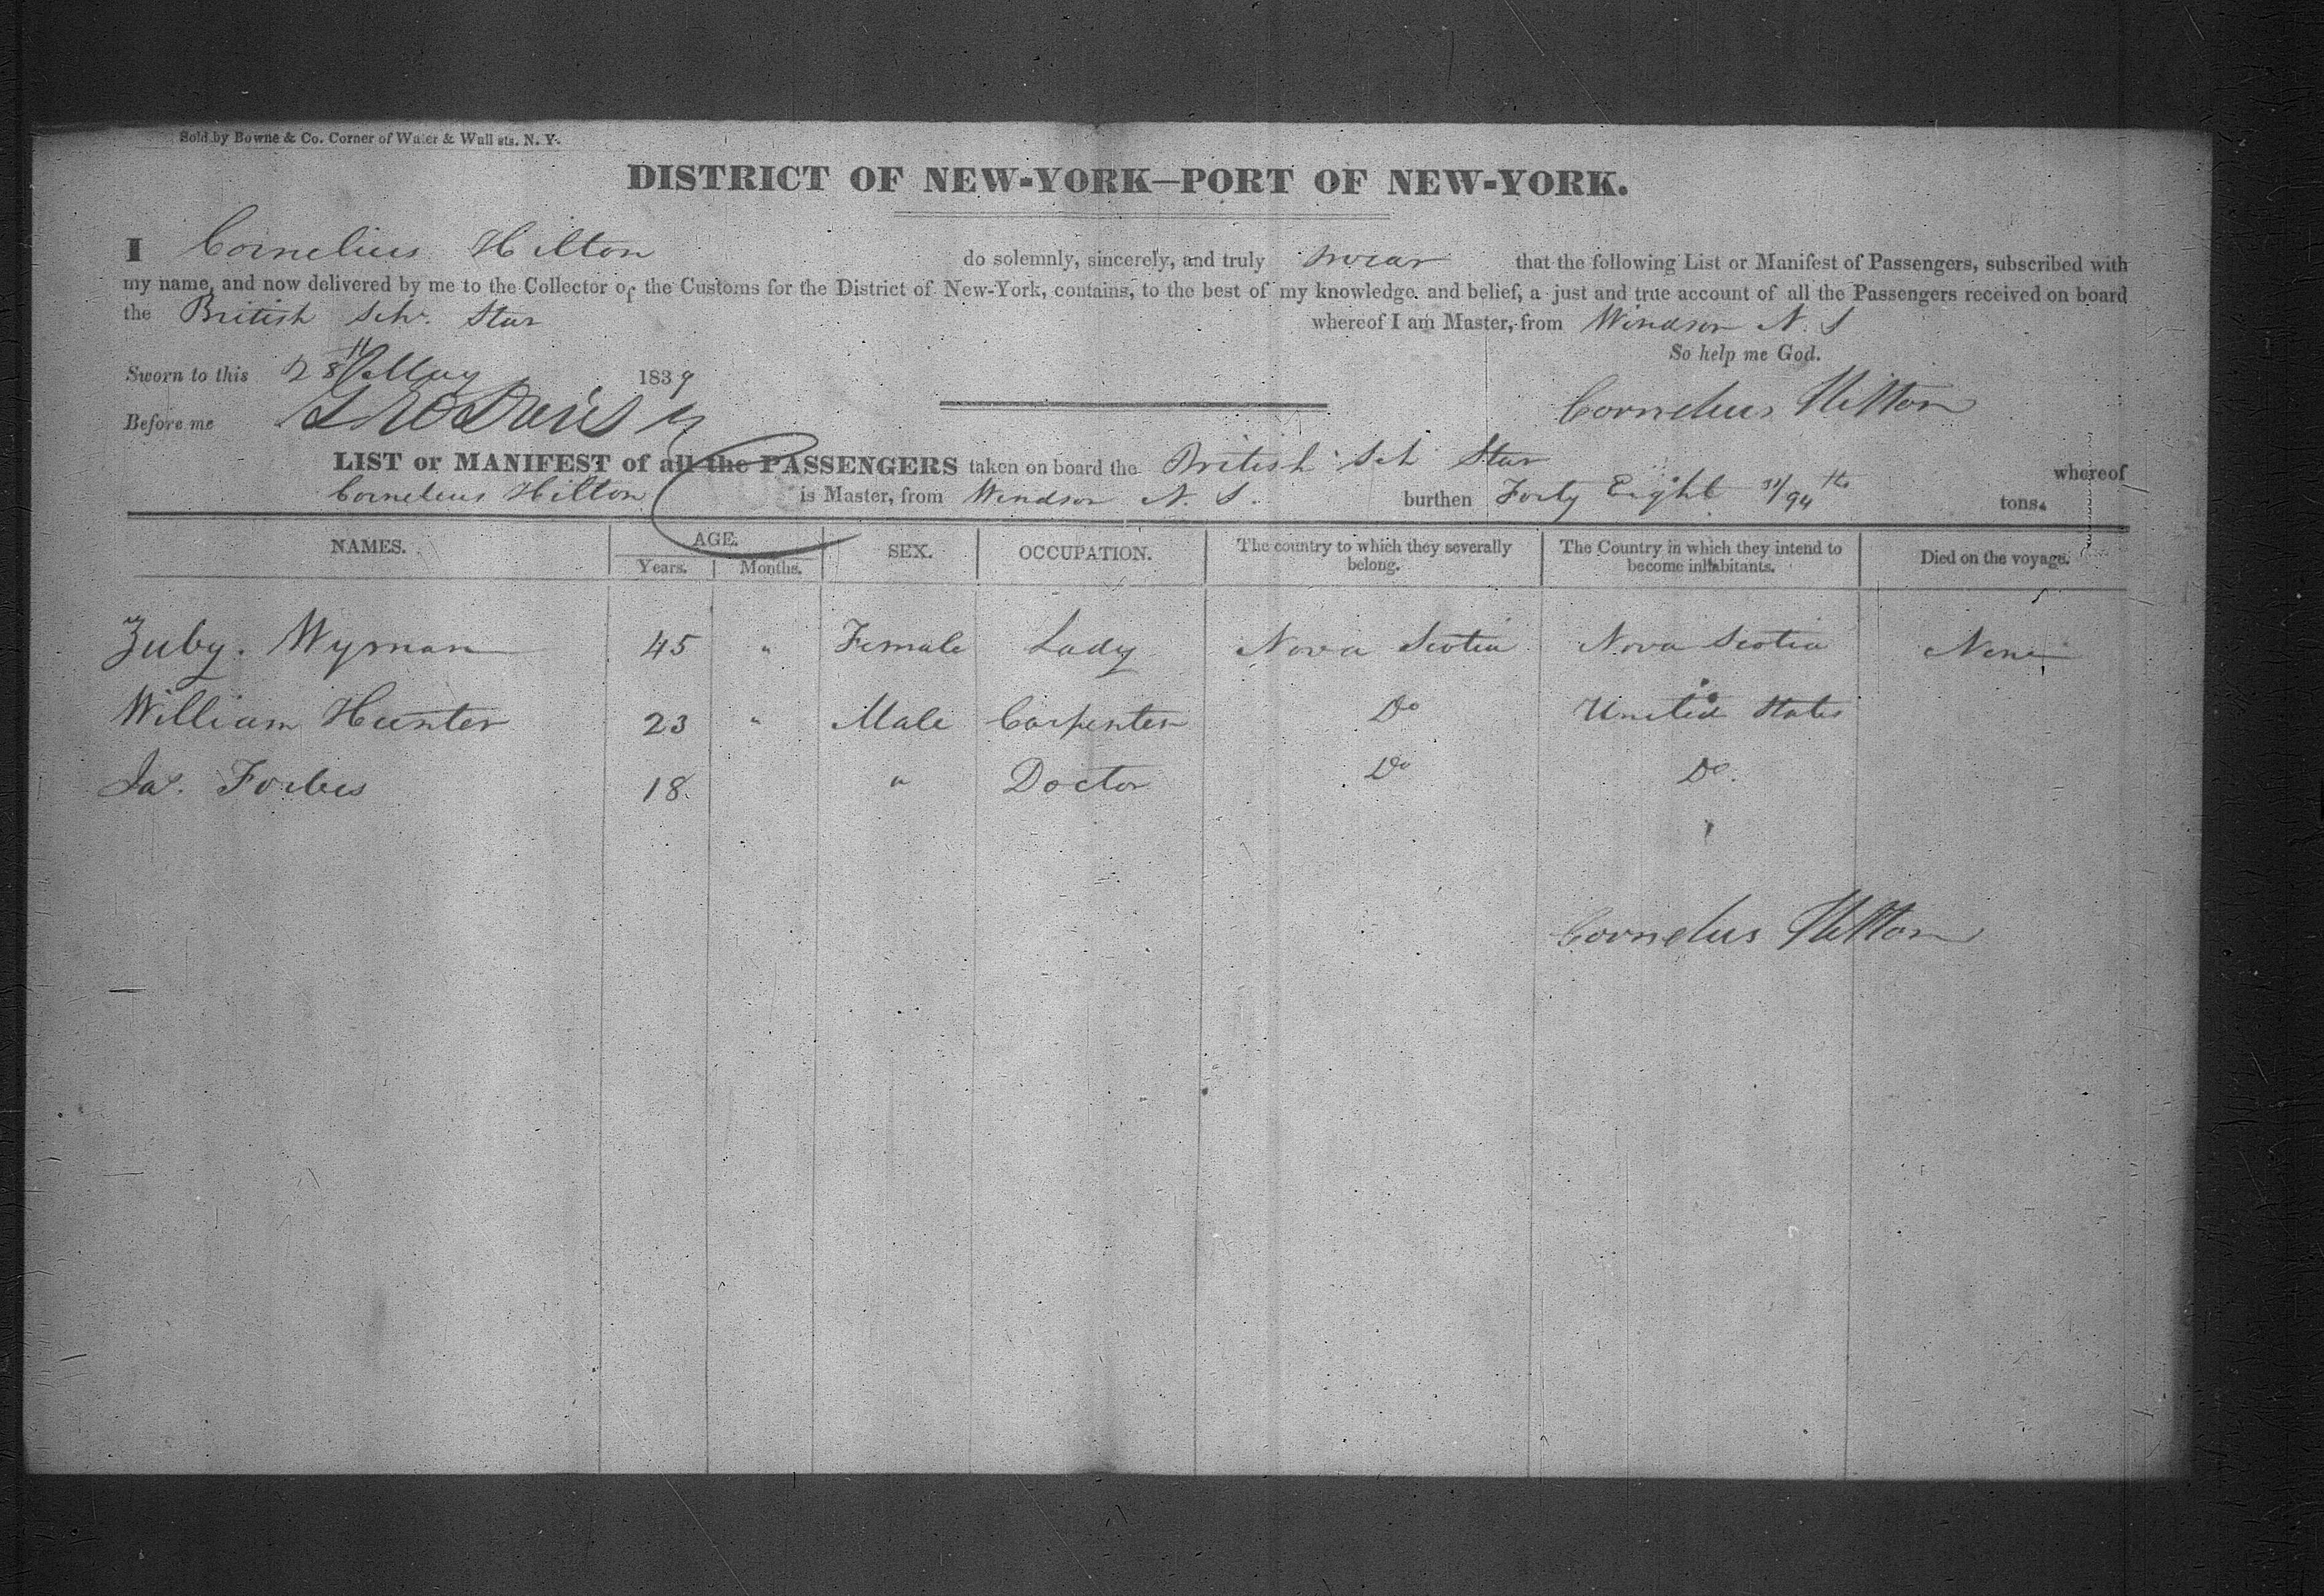 Sold by Bowne & Co. Corner of Water & Wall sts. N. Y.
DISTRICT OF NEW-YORK—PORT OF NEW-YORK.
I Cornelius Hilton do solemnly, sincerely, and truly swear that the following List or Manifest of Passengers, subscribed with
my name, and now delivered by me to the Collector of the Customs for the District of New-York, contains, to the best of my knowledge and belief, a just and true account of all the Passengers received on board
the British Schr. Star whereof I am Master, from Windsor N. S
So help me God.
Sworn to this 28th May 1839
Cornelius Hilton
Before me
LIST or MANIFEST of all the PASSENGERS taken on board the British Sch Star whereof
Cornelius Hilton is Master, from Windsor N. S. burthen Forty Eight /94ths tons.
NAMES. AGE. SEX. OCCUPATION. The country to which they severally belong. The Country in which they intend to become inhabitants. Died on the voyage.
Years. Months.
Zuby. Wyman 45 " Female Lady Nova Scotia Nova Scotia None
William Hunter 23 " Male Carpenter Do United States
Jas. Forbes 18 " Doctor Do Do.
Cornelius Hilton